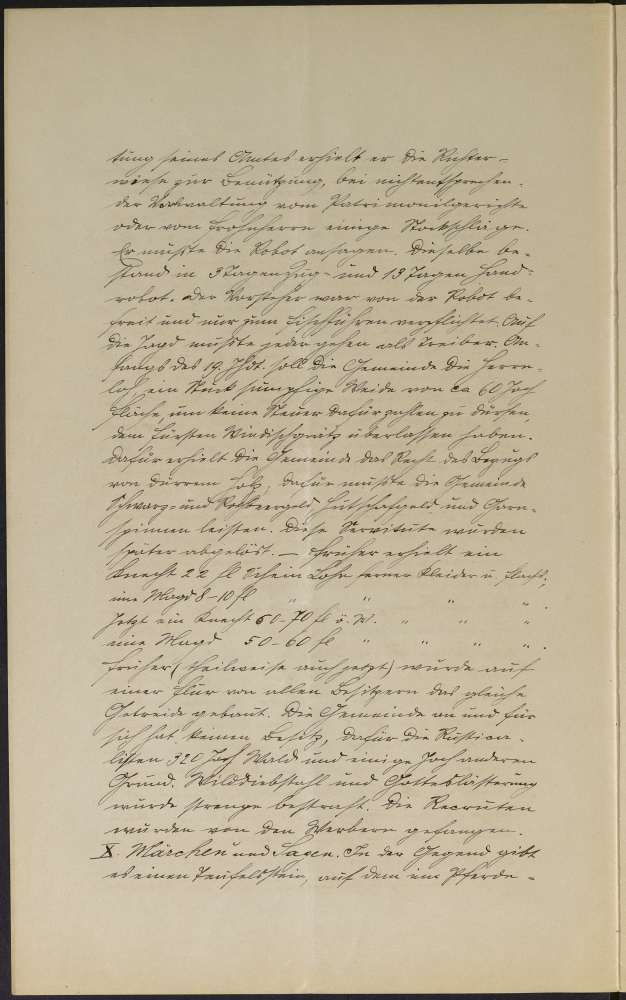 tung seines Amtes erhielt er die Richter-
wiese zur Benützung, bei nichtentsprechen-
der Verwaltung vom Patrimonialgerichte
oder vom Frohnherrn einige Stockschläge.
Er mußte die Robot ansagen. Dieselbe be-
stand in 3 Tagen Zug- und 13 Tagen Hand-
robot. Der Vorsteher war von der Robot be-
freit und nur zum Fischführen verpflichtet. Auf
die Jagd mußte jeder gehen als Treiber. An-
fangs des 19. Jhdt. soll die Gemeinde die
ein Stück sumpfige Weide von ca 60 Joch
Fläche, um keine Steuer dafür zahlen zu dürfen,
dem Fürsten Windischgrätz überlassen haben.
Dafür erhielt die Gemeinde das Recht des Bezugs
von dürrem Holz, dafür mußte die Gemeinde
Schwarz- und Hutschafgeld und Garn-
spinnen leisten. Diese Servitute wurden
später abgelöst. — Früher erhielt ein
Knecht 22 fl Schein Lohn, ferner Kleider u. Flachs,
eine Magd 8-10 fl " " " " .
Jetzt ein Knecht 60-70 fl ö. W. " " " .
eine Magd 50-60 fl " " " " .
Früher (theilweise auch jetzt) wurde auf
einer Flur von allen Besitzern das gleiche
Getreide gebaut. Die Gemeinde an und für
sich hat keinen Besitz, dafür die Rustica-
listen 320 Joch Wald und einige Joch anderen
Grund. Wilddiebstahl und Gotteslästerung
wurde strenge bestraft. Die Recruten
wurden von den Werbern gefangen.
X. Märchen und Sagen. In der Gegend gibt
es einen Teufelsstein, auf dem ein Pferde-